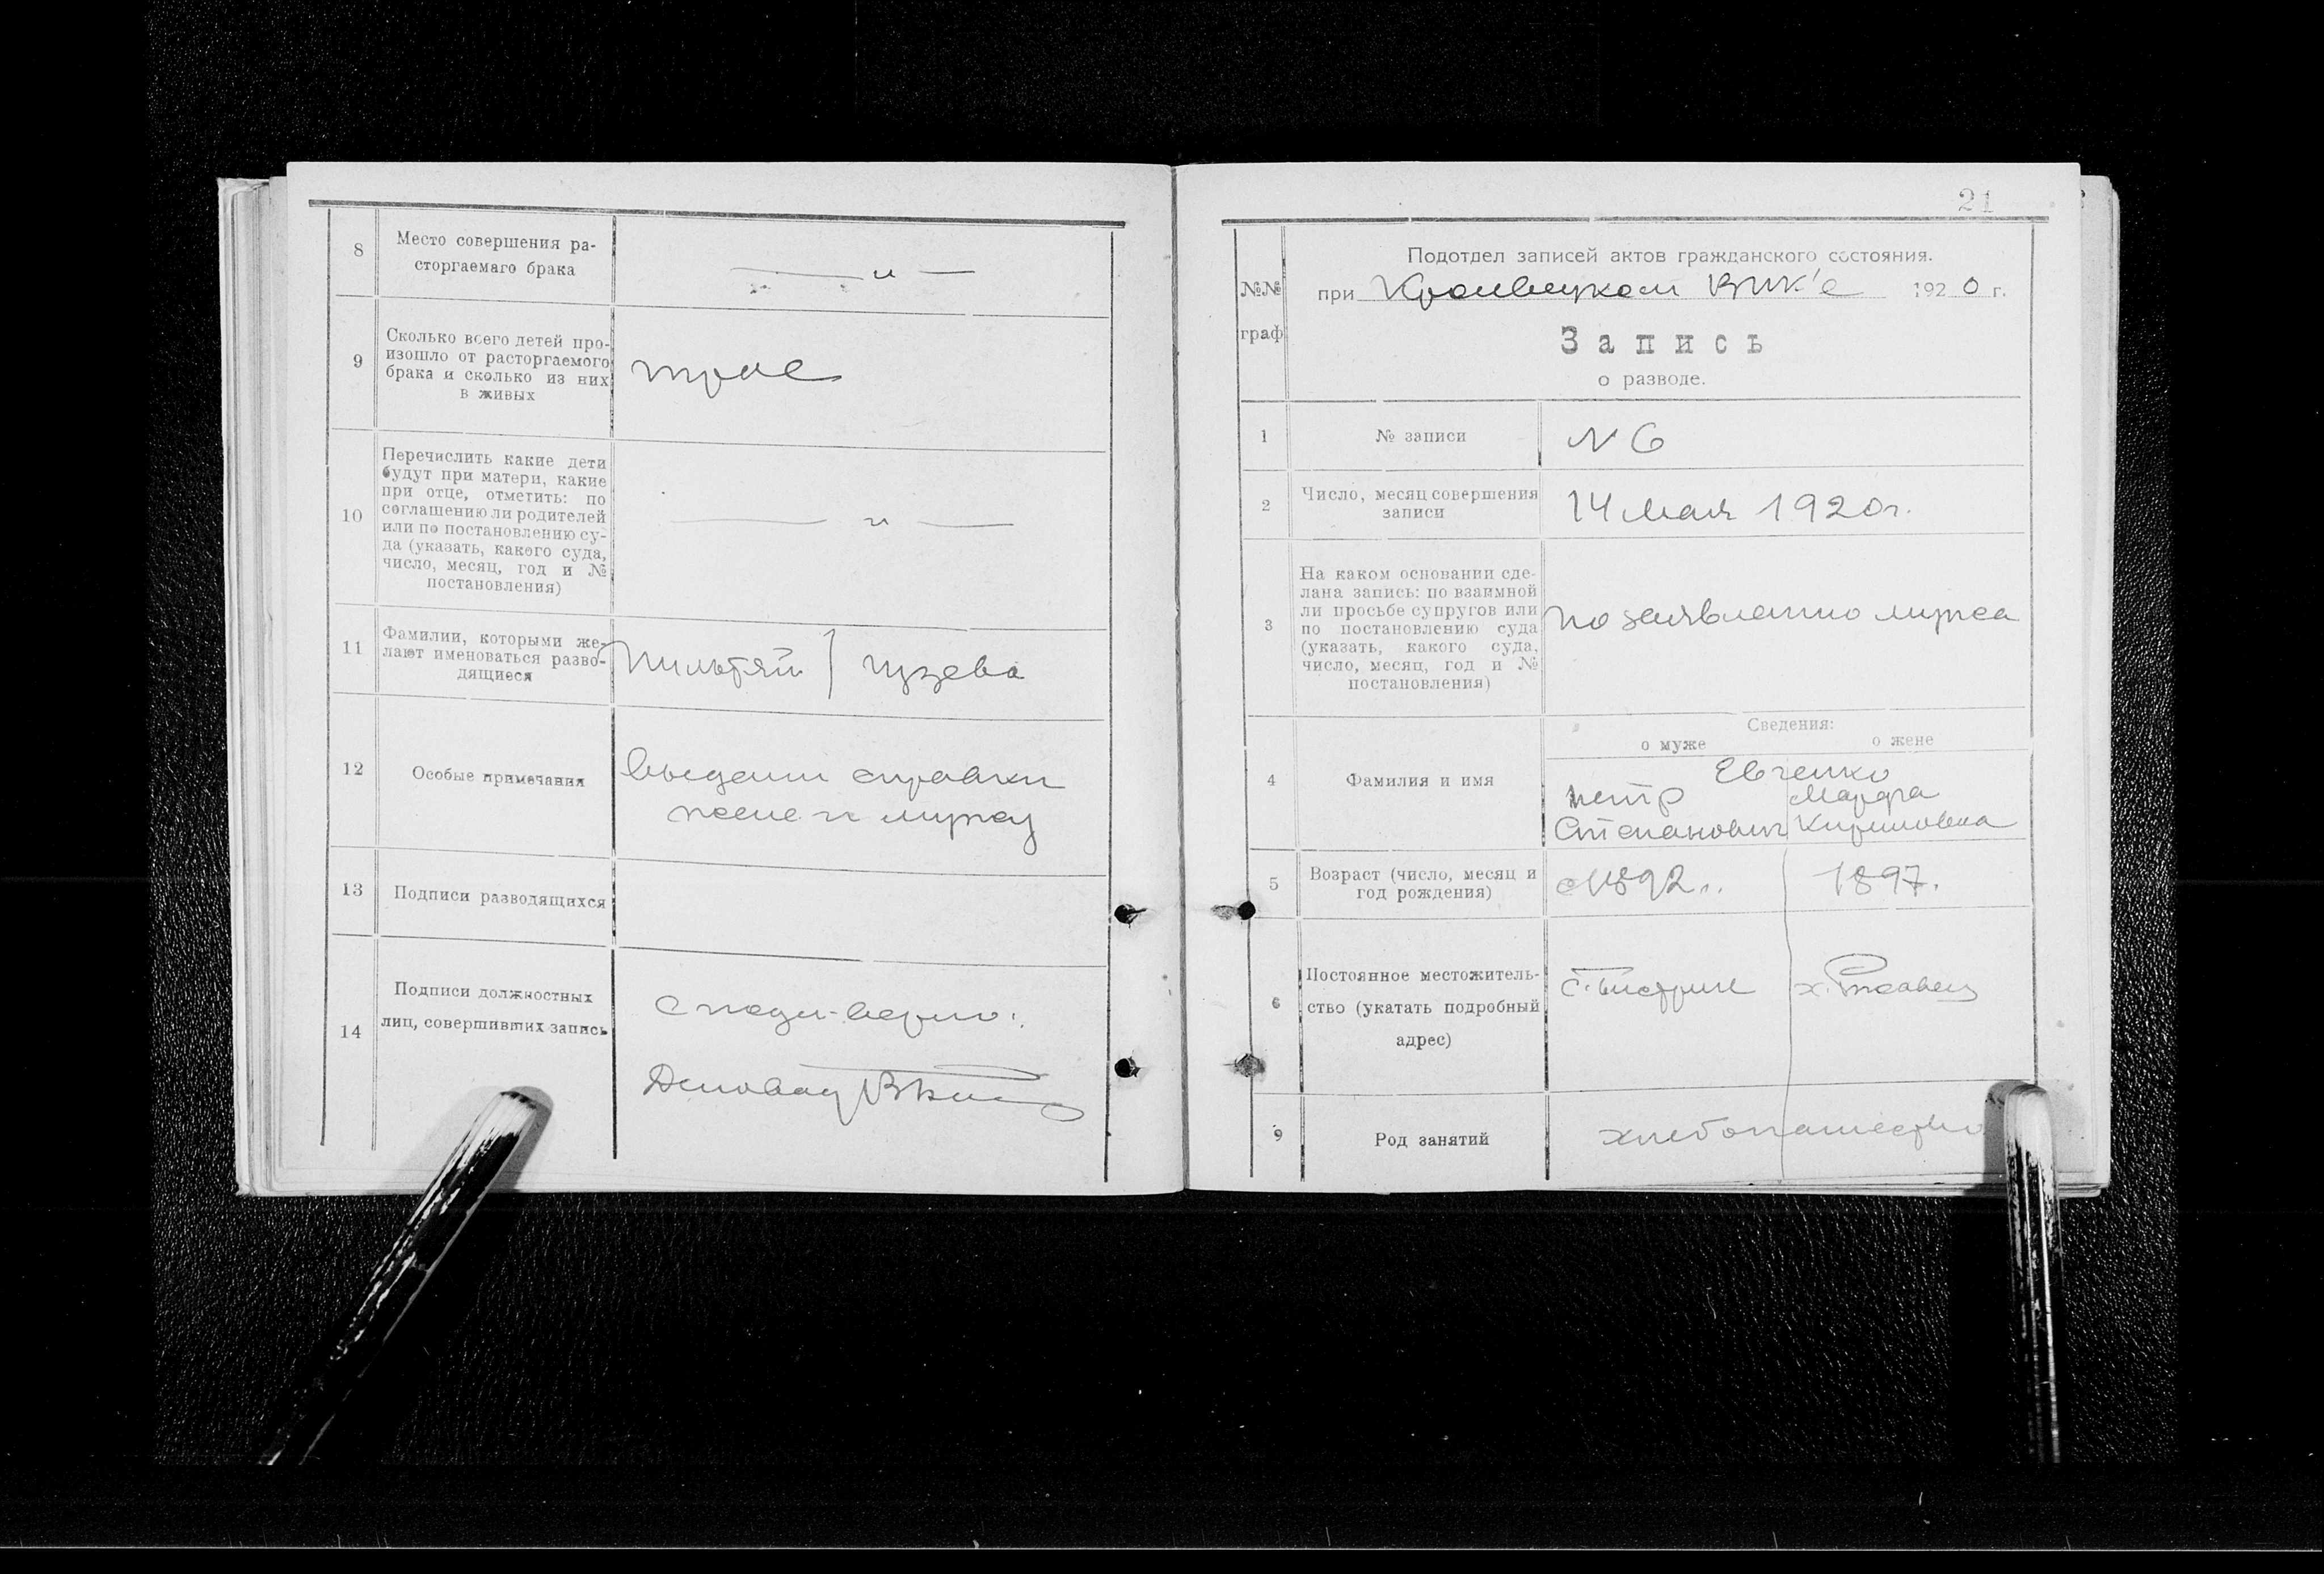 8
Место совершения ра-
сторгаемаго брака
— „ —
9
Сколько всего детей про-
изошло от расторгаемого
брака и сколько из них
в живых
трое
10
Перечислить какие дети
будут при матери, какие
при отце, отметить: по
соглашению ли родителей
или по постановлению су-
да (указать, какого суда,
число, месяц, год и №
постановления)
— „ —
11
Фамилии, которыми же-
лают именоваться разво-
дящиеся
Пильтяй / Гузева
12
Особые примечания
Выданы справки
жене и мужу
13
Подписи разводящихся
14
Подписи должностных
лиц, совершивших запись
С подл. верно:
Деловод
21
№№
граф
Подотдел записей актов гражданского состояния.
при Кролевецком Вик'е 1920 г.
Запись
о разводе.
1
№ записи
N 6
2
Число, месяц совершения
записи
14 мая 1920 г.
3
На каком основании сде-
лана запись: по взаимной
ли просьбе супругов или
по постановлению суда
(указать, какого суда,
число, месяц, год и №
постановления)
по заявлению мужа
Сведения:
о муже
о жене
4
Фамилия и имя
Евченко
Петр
Степанович
Марфа
Кириловна
5
Возраст (число, месяц и
год рождения)
1892 г.
1897.
6
Постоянное местожитель-
ство (укатать подробный
адрес)
с. Быстрик
х.
9
Род занятий
хлебопашество